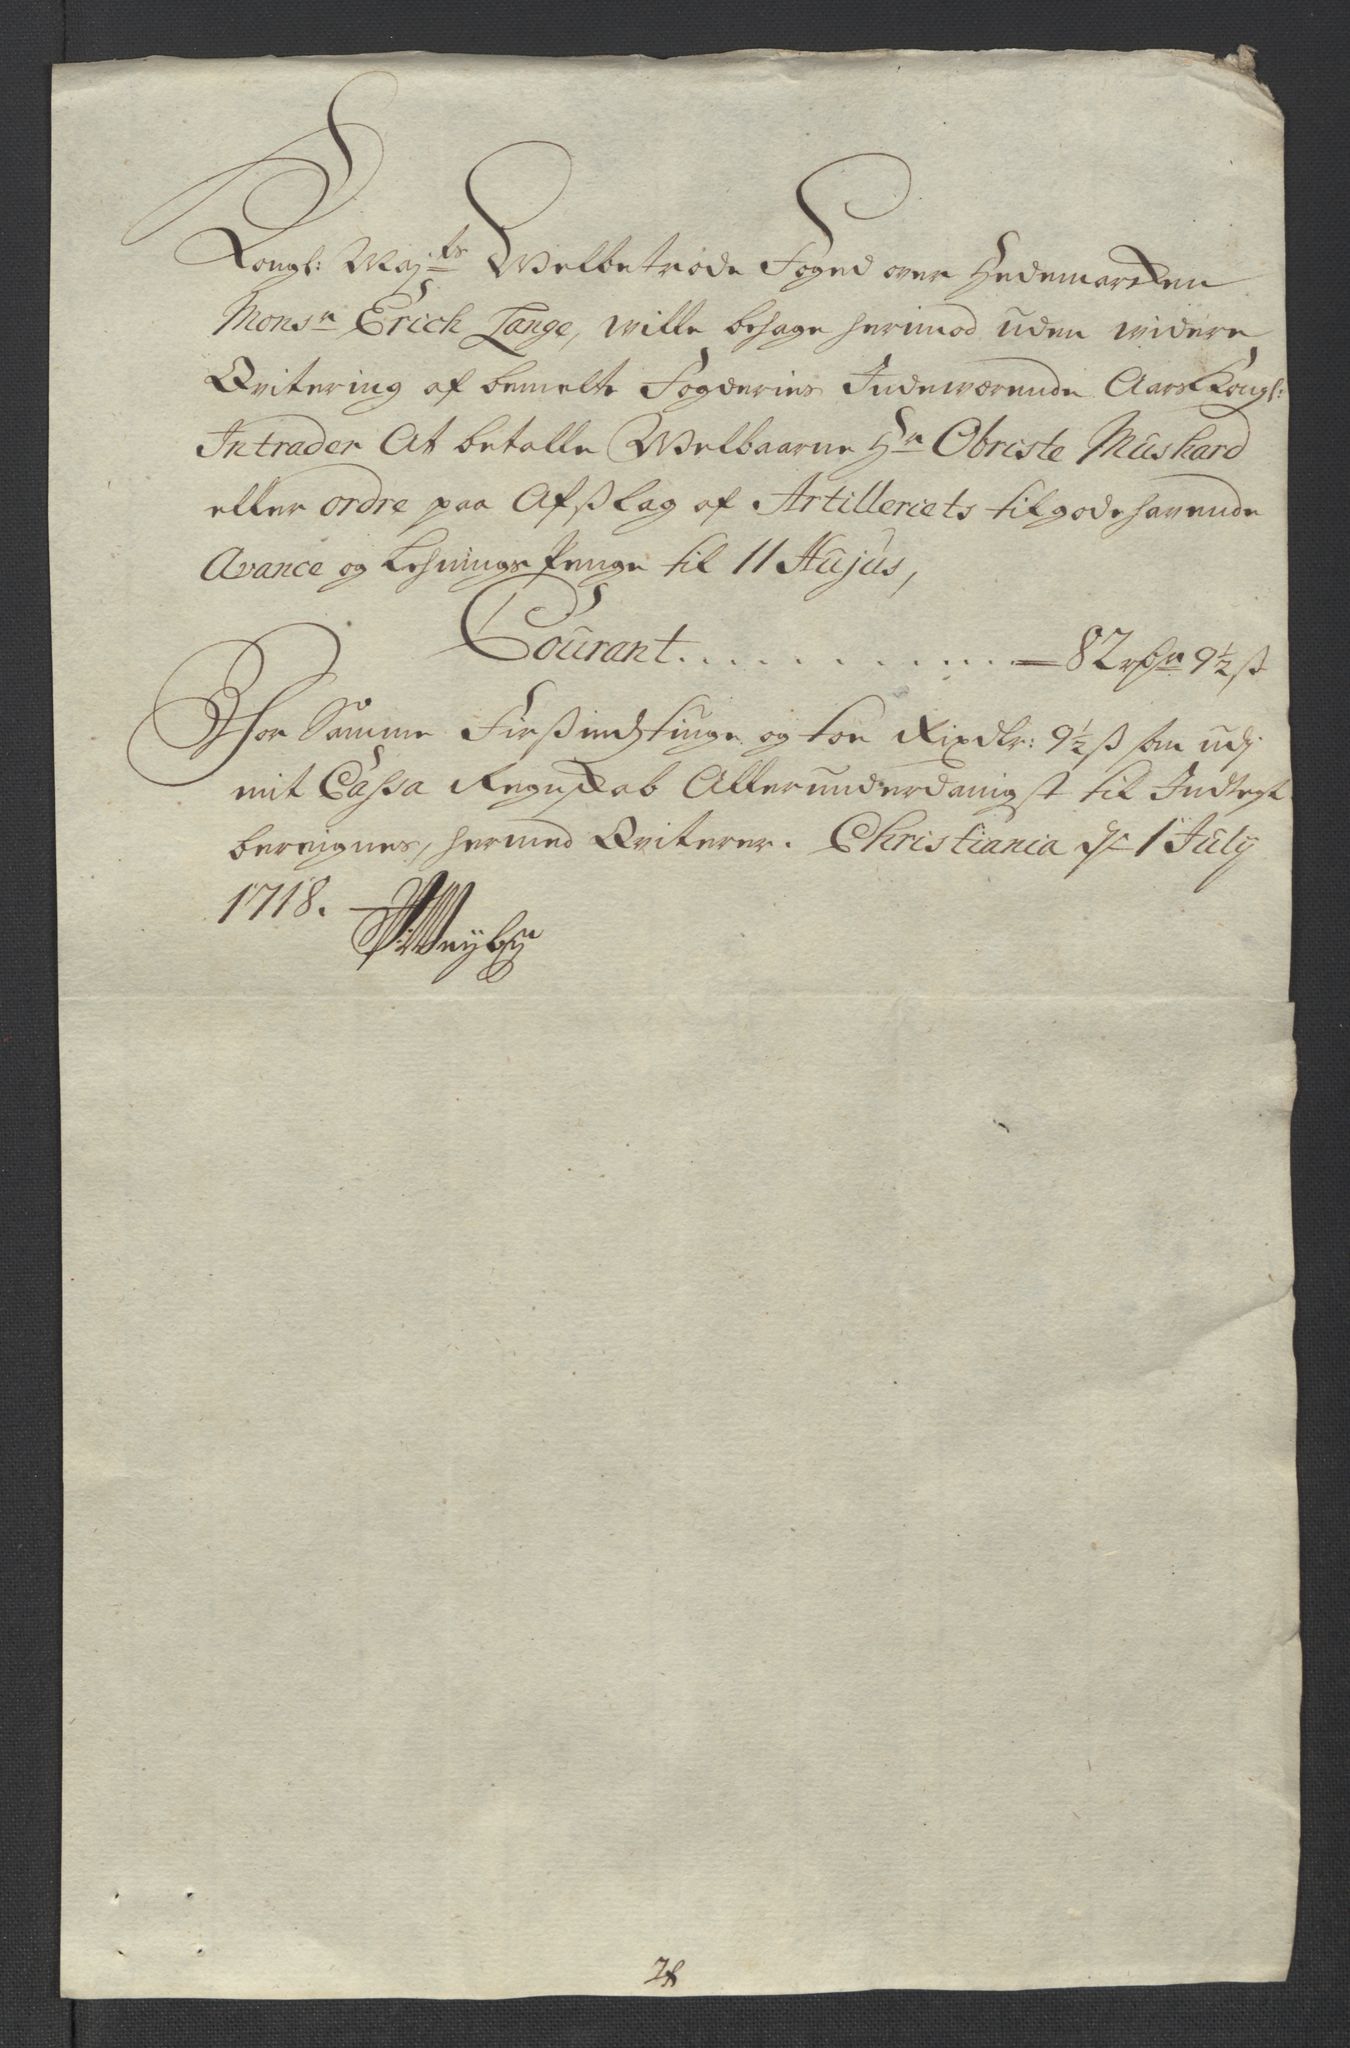 Kongl: May:ts Welbetrode Foged over Hedemarken
Monsr Erich Lange, wille behage herimod uden widere
Qvitering af bemelte Fogderies Indeværende Aars Kongl:
Intrader At betalle Welbaarne Hr Obriste Müshard
eller ordre paa Afslag af Artilleriets tilgodehavende
Avance og Lehnings Penge til 11 Hujus,
Courant. . . . . . . . . . . . 82 rdr 9½ ß
For Samme Firßindstiuge og toe Rixdlr: 9½ ß som udj
mit Cassa Regnskab Allerunderdanigst til Indtegt
bereignes, hermed Qviterer. Christiania d: 1 July
1718.